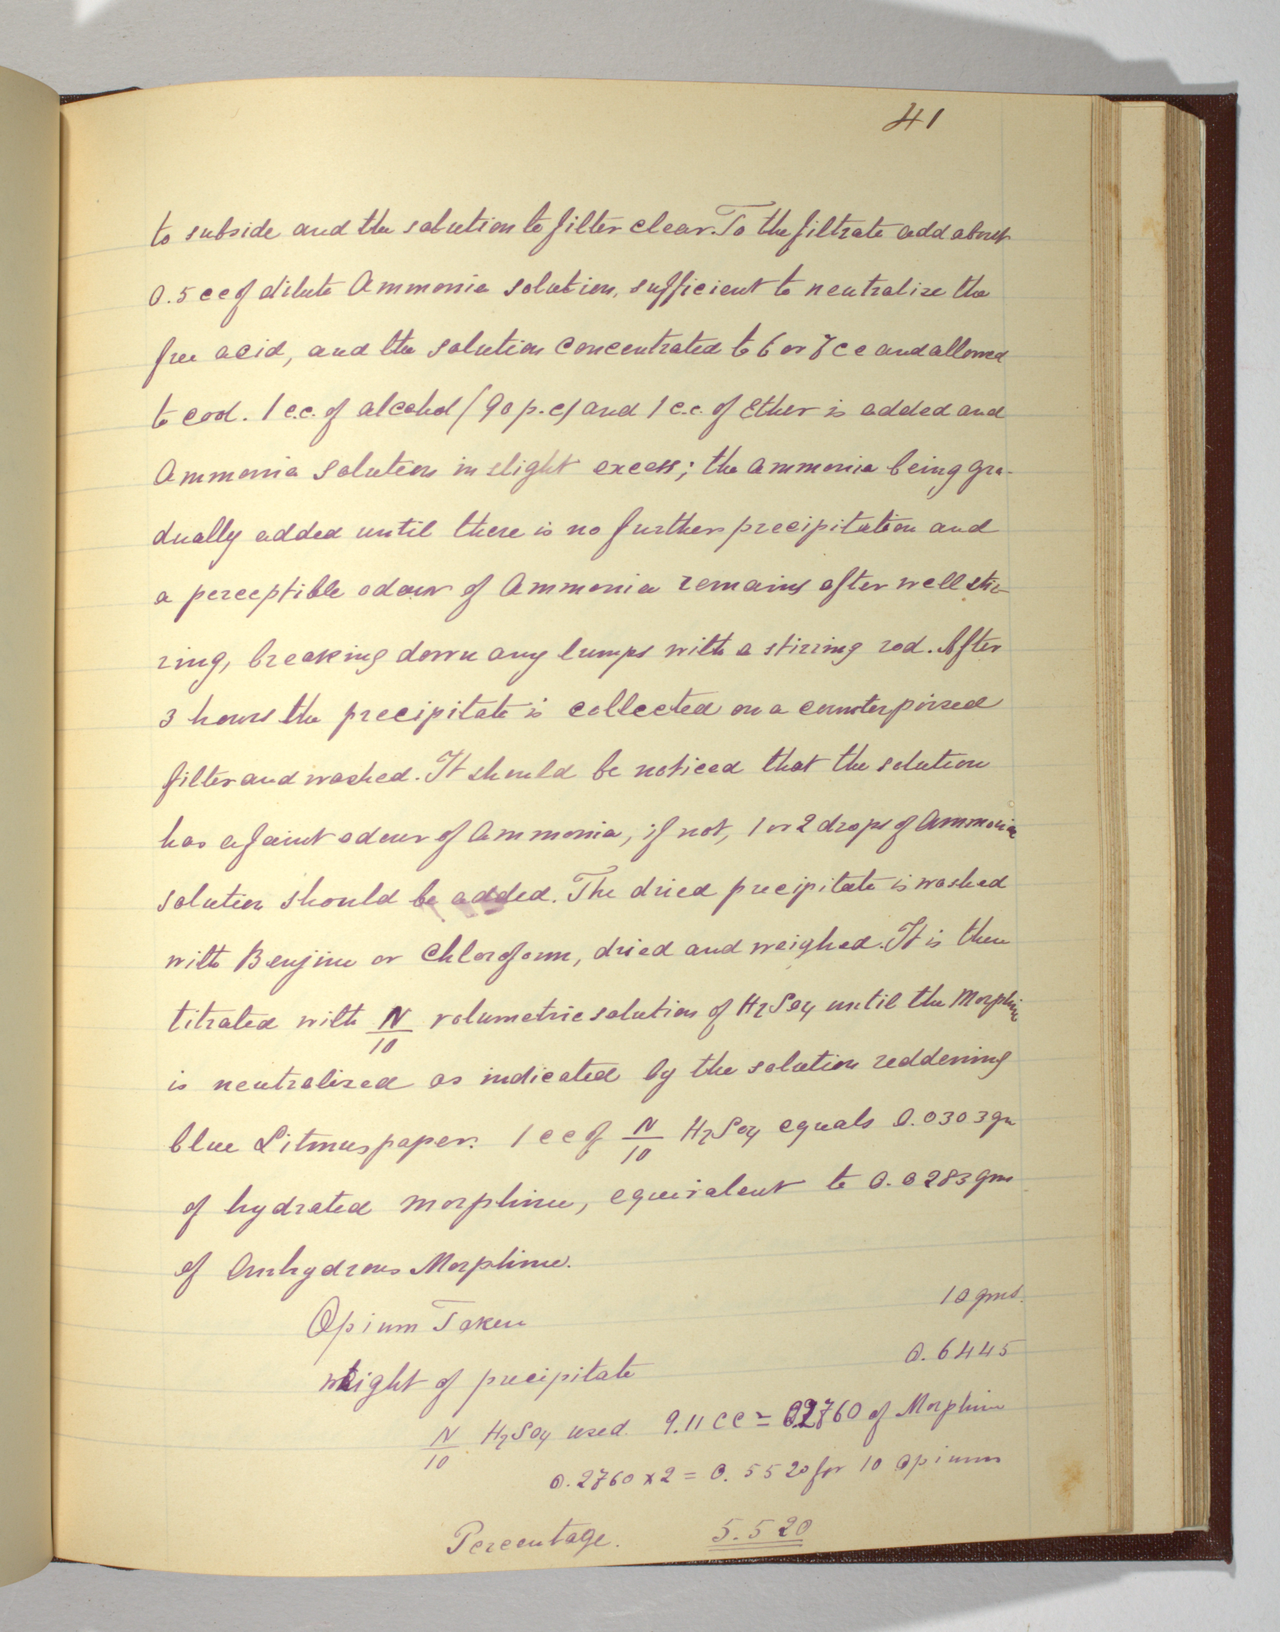 41
to subside and the solution to filter clear. To the filtrate add about
0.5 cc of dilute Ammonia solution, sufficient to neutralize the
free acid, and the solution concentrated to 6 or 7 cc and allowed
to cool. 1 c.c. of alcohol (90 p.c) and 1 c.c. of Ether is added and
Ammonia solution in slight excess; the ammonia being gra-
dually added until there is no further precipitation and
a perceptible odour of Ammonia remains after well stir-
ring, breaking down any lumps with a stirring rod. After
3 hours the precipitate is collected on a counterpoised
filter and washed. It should be noticed that the solution
has a faint odour of Ammonia, if not, 1 or 2 drops of Ammonia
solution should be added. The dried precipitate is washed
with Benjine or Chloroform, dried and weighed. It is then
titrated with N/10 volumetric solution of H2So4 until the Morphine
is neutralized as indicated by the solution reddening
blue Litmus paper. 1 cc of N/10 H2So4 equals 0.0303 gm
of hydrated Morphine, equivalent to 0.0283 gm
of Anhydrous Morphine.
Opium Taken 10 gms.
weight of precipitate 0.6445
N/10 H2So4 used 9.11 cc = 02760 of Morphine
0.2760 x 2 = 0.5520 for 10 opium
Percentage. 5.520